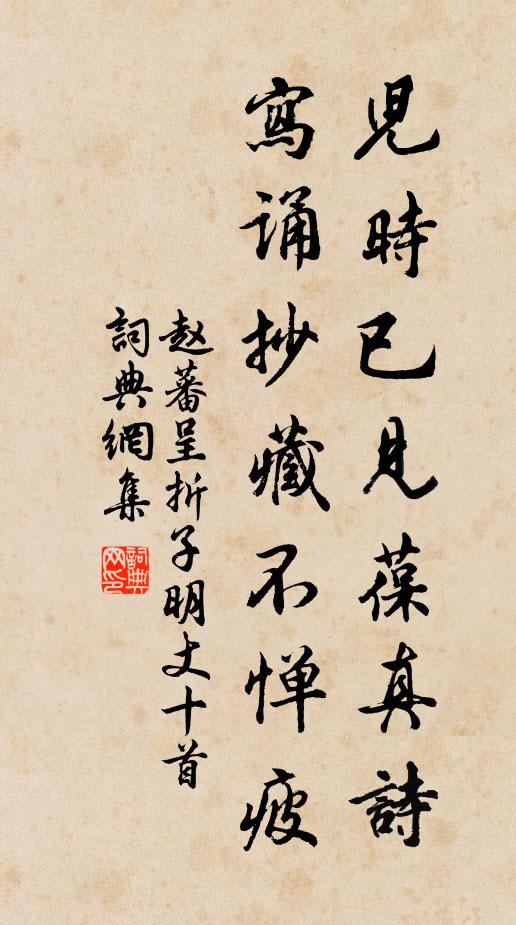 兒時已見葆真詩
寫诵抄藏不惮疲
赵蕃呈折子明丈十首
詞典網集
詞典网印